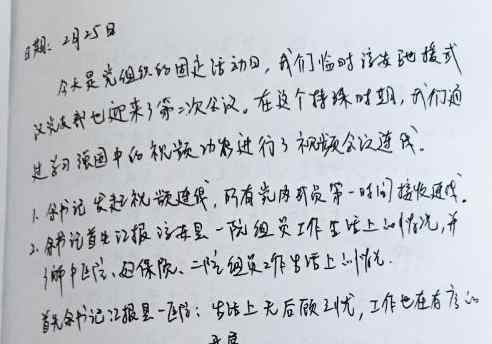 日期：2月25日
今天是党组织的固定活动日，我们临时
党支部也迎来了第二次会议。在这个特殊时期，我们通
过学习强国中的视频功能进行了视频会议连线。
1.余书记发起视频连线，所有党员第一时间接收连线。
2.余书记首先汇报一院组员工作生活上的情况，并
中医院、妇保院、二院组员工作生活上的情况.
首先余书记汇报县一医院：生活上无后顾之忧，工作也在有序的
开展